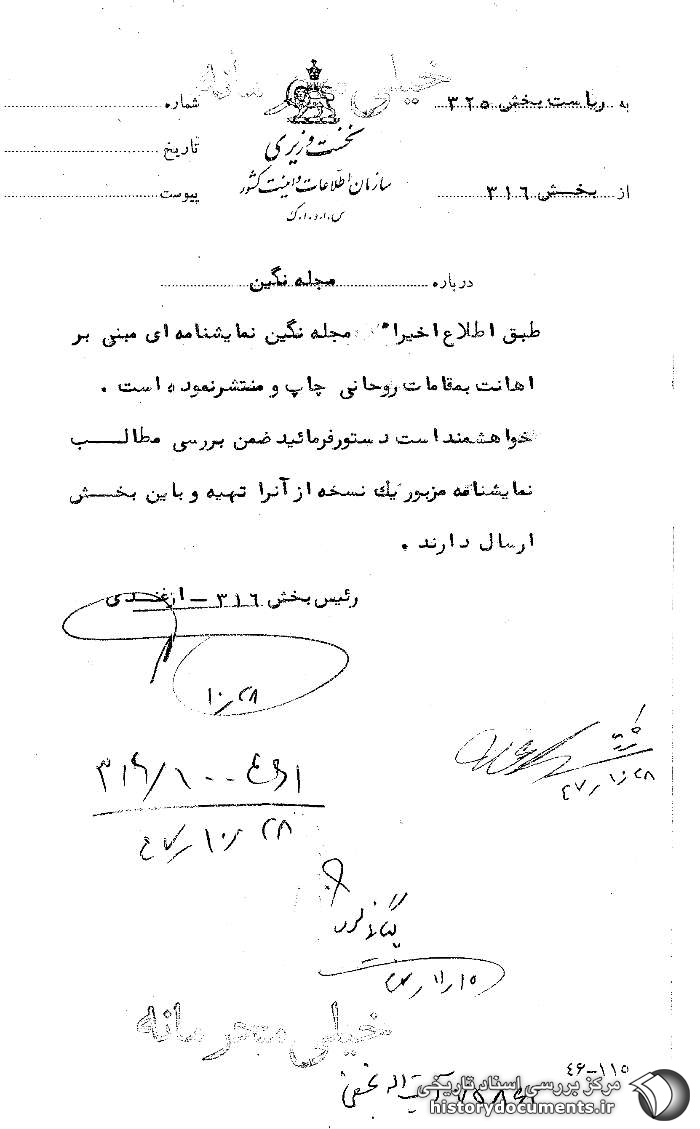 خیلی محرمانه
به ریاست بخش ۳۲۵
شماره
نخست وزیری
تاریخ
سازمان اطلاعات و امنیت کشور
از بخش ۳۱۶
پیوست
س.ا.و.ا.ک
درباره مجله نگین
طبق اطلاع اخیرا" مجله نگین نمایشنامه ای مبنی بر
اهانت بمقامات روحانی چاپ و منتشر نموده است .
خواهشمند است دستور فرمائید ضمن بررسی مطالب
نمایشنامه مزبور یک نسخه از آنرا تهیه و باین بخش
ارسال دارند .
رئیس بخش ۳۱۶ - ازغندی
۱۰/۲۸
۴۷/۱۰/۲۸
۴۷/۱۰/۲۸
خیلی محرمانه
۴۶-۱۱۵
مرکز بررسی اسناد تاریخی
historydocuments.ir